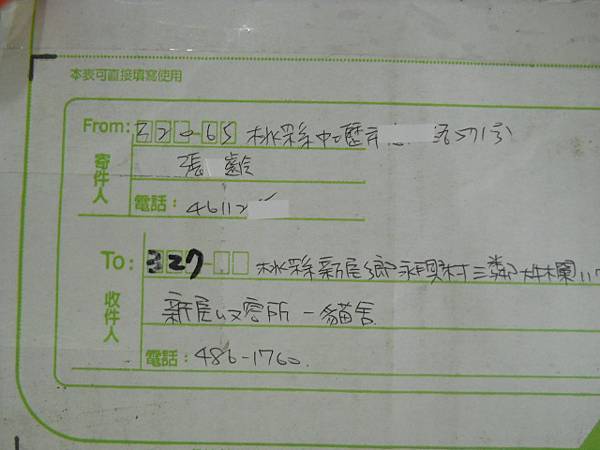 本表可直接填寫使用
From: 320-65 桃縣中壢市
寄件人
張 齡
電話：46112
To: 327 桃縣新屋鄉永興村三鄰大牛欄117
收件人
新屋收容所-貓舍
電話：486-1760